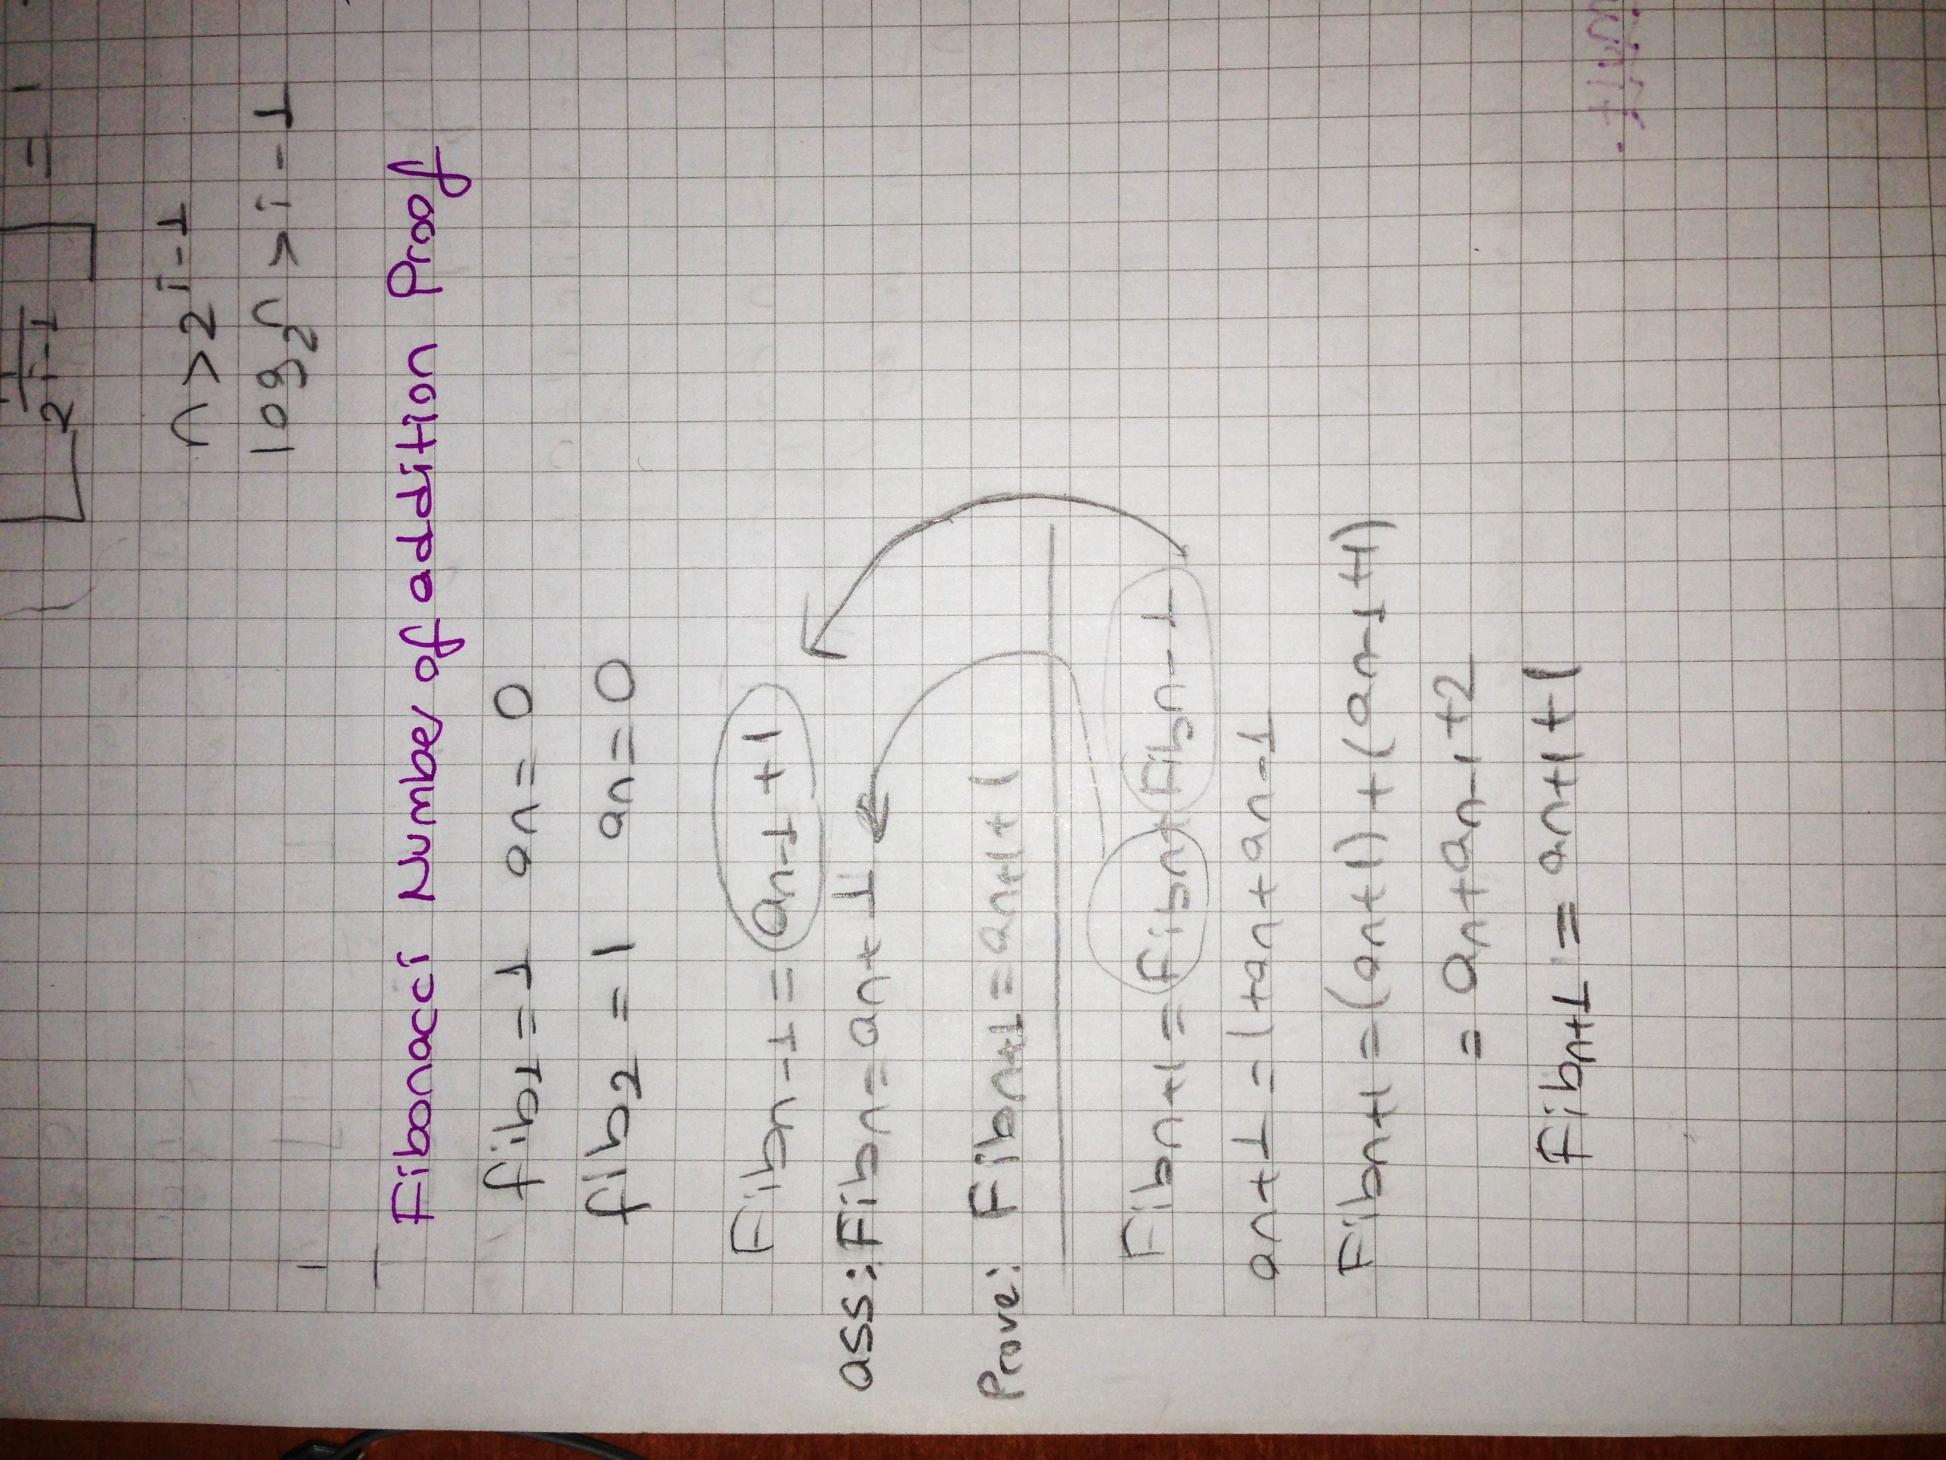 2^(i-1) = 1
n > 2^(i-1)
log₂n > i-1
Fibonacci Number of addition Proof
fib₁ = 1 an = 0
fib₂ = 1 an = 0
Fibn-1 = an-1 + 1
ass: Fibn = an + 1
Prove: Fibn+1 = an+1 + 1
Fibn+1 = Fibn + Fibn-1
an+1 = 1 + an + an-1
Fibn+1 = (an+1) + (an-1+1)
= an + an-1 + 2
Fibn+1 = an+1 + 1